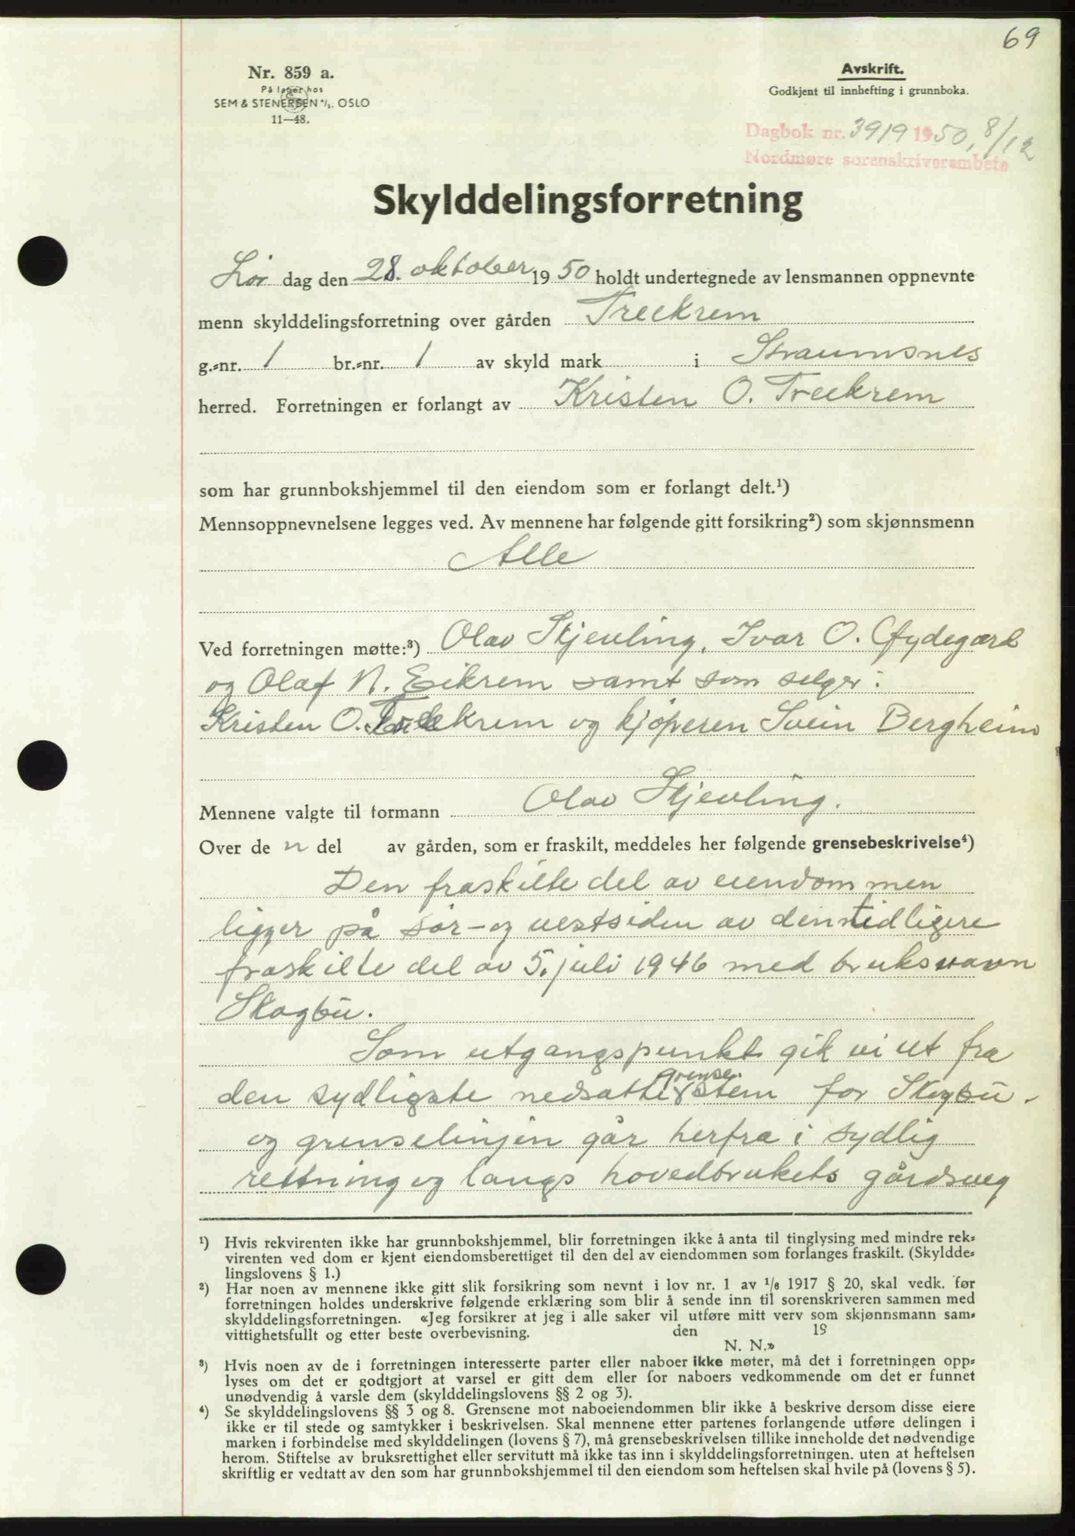 69
Nr. 859 a.
På lager hos
SEM & STENERSEN A/S. OSLO
11—48.
Avskrift.
Godkjent til innhefting i grunnboka.
Dagbok nr. 3919 1950, 8/12
Nordmøre sorenskriverembete
Skylddelingsforretning
Lør dag den 28. oktober 1950 holdt undertegnede av lensmannen oppnevnte
menn skylddelingsforretning over gården Treekrem
g.-nr. 1 br.-nr. 1 av skyld mark i Straumsnes
herred. Forretningen er forlangt av Kristen O. Treekrem
som har grunnbokshjemmel til den eiendom som er forlangt delt.¹)
Mennsoppnevnelsene legges ved. Av mennene har følgende gitt forsikring²) som skjønnsmenn
Alle
Ved forretningen møtte:³) Olav Skjevling, Ivar O. Øydegard
og Olaf N. Eikrem samt som selger:
Kristen O. Treekrem og kjøperen Svein Bergheim
Mennene valgte til formann Olav Skjevling.
Over de n del av gården, som er fraskilt, meddeles her følgende grensebeskrivelse⁴)
Den fraskilte del av eiendommen
ligger på sør- og vestsiden av den tidligere
fraskilte del av 5. juli 1946 med bruksnavn
Skogbu.
Som utgangspunkt gik vi ut fra
den sydligste nedsatte grensestein for Skogbu -
og grenselinjen går herfra i sydlig
rettning og langs hovedbrukets gårdsveg
¹) Hvis rekvirenten ikke har grunnbokshjemmel, blir forretningen ikke å anta til tinglysing med mindre rek-
virenten ved dom er kjent eiendomsberettiget til den del av eiendommen som forlanges fraskilt. (Skyldde-
lingslovens § 1.)
²) Har noen av mennene ikke gitt slik forsikring som nevnt i lov nr. 1 av 1/6 1917 § 20, skal vedk. før
forretningen holdes underskrive følgende erklæring som blir å sende inn til sorenskriveren sammen med
skylddelingsforretningen. «Jeg forsikrer at jeg i alle saker vil utføre mitt verv som skjønnsmann sam-
vittighetsfullt og etter beste overbevisning. den 19
N. N.»
³) Hvis noen av de i forretningen interesserte parter eller naboer ikke møter, må det i forretningen opp-
lyses om det er godtgjort at varsel er gitt dem eller for naboers vedkommende om det er funnet
unødvendig å varsle dem (skylddelingslovens §§ 2 og 3).
⁴) Se skylddelingslovens §§ 3 og 8. Grensene mot naboeiendommen blir ikke å beskrive dersom disse eiere
ikke er til stede og samtykker i beskrivelsen. Skal mennene etter partenes forlangende utføre delingen i
marken i forbindelse med skylddelingen (lovens § 7), må grensebeskrivelsen tillike inneholde det nødvendige
herom. Stiftelse av bruksrettighet eller servitutt må ikke tas inn i skylddelingsforretningen, uten at heftelsen
skriftlig er vedtatt av den som har grunnbokshjemmel til den eiendom som heftelsen skal hvile på (lovens § 5).